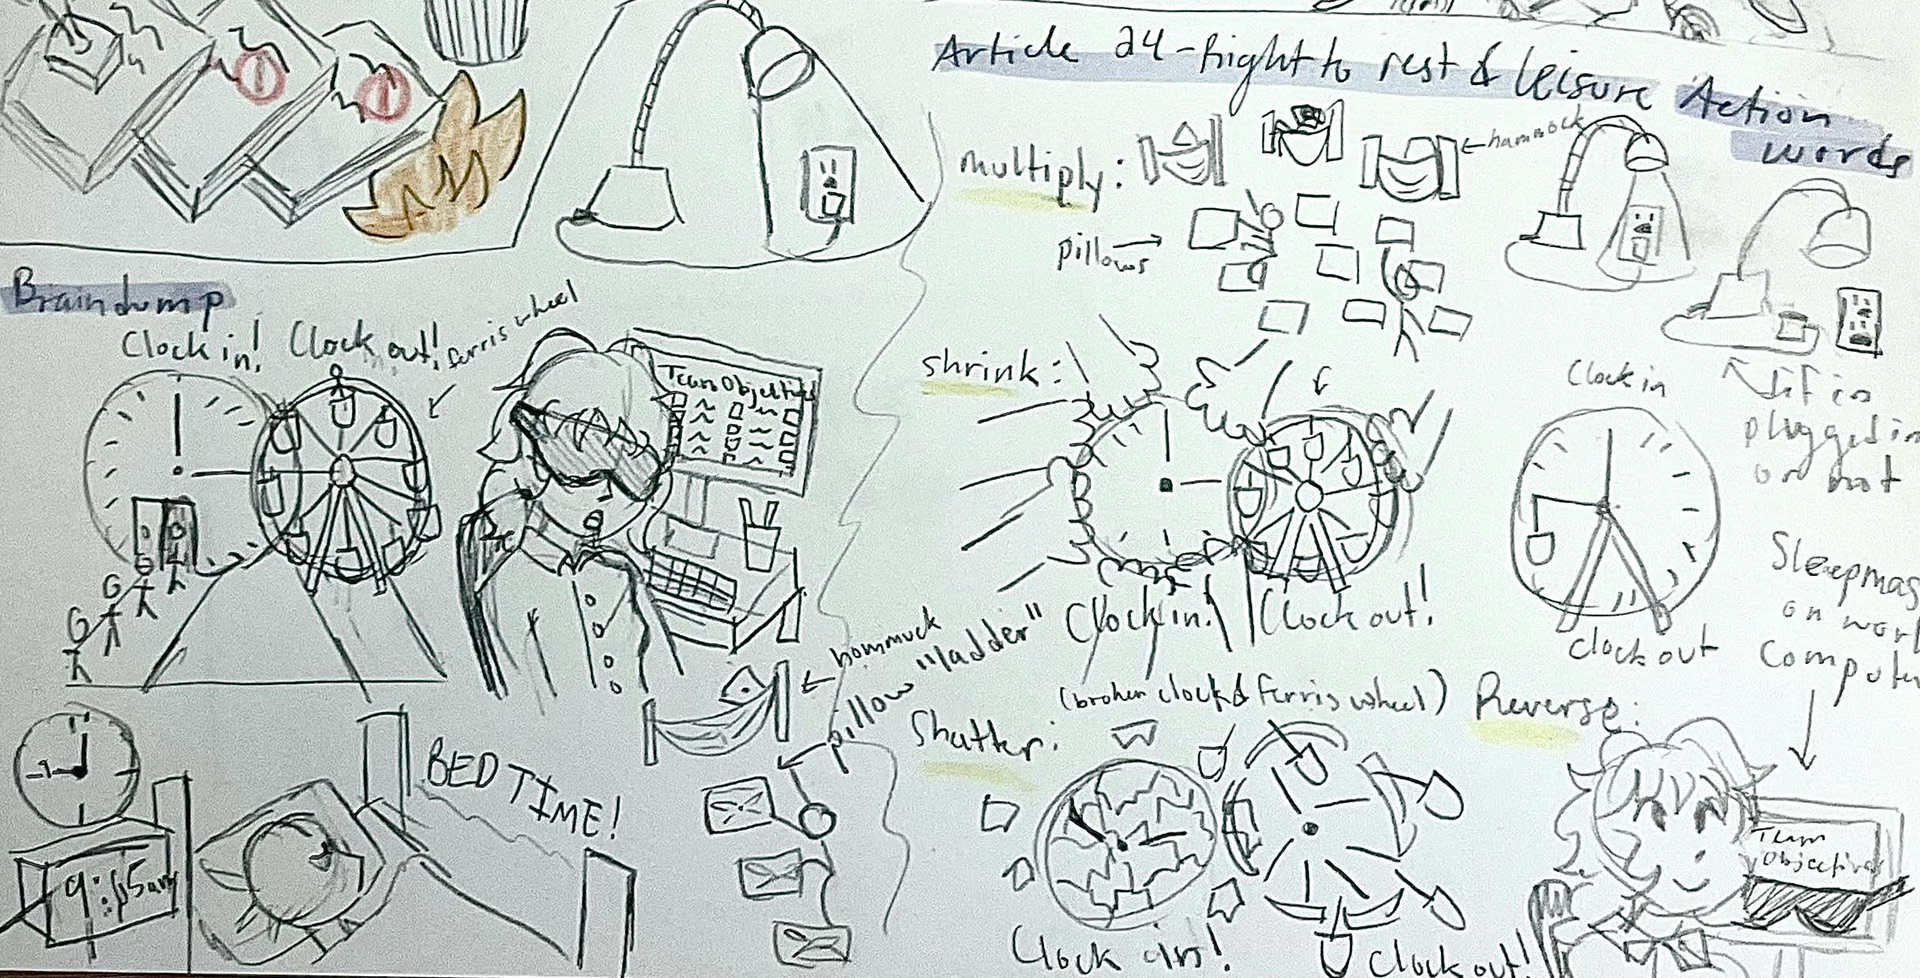 Article 24 - Right to rest & leisure Action
words
multiply:
hammock
pillows
If is
plugged in
or not
Braindump
Clock in! Clock out!
ferris wheel
Team Objectives
shrink:
Clock in! Clock out!
Clock in
Clock out
Sleepmas
on work
computer
hommuck
pillow "ladder"
BED TIME!
9
Shatter:
(broken clock & ferris wheel)
Clock in! Clock out!
Reverse:
Team
Objective